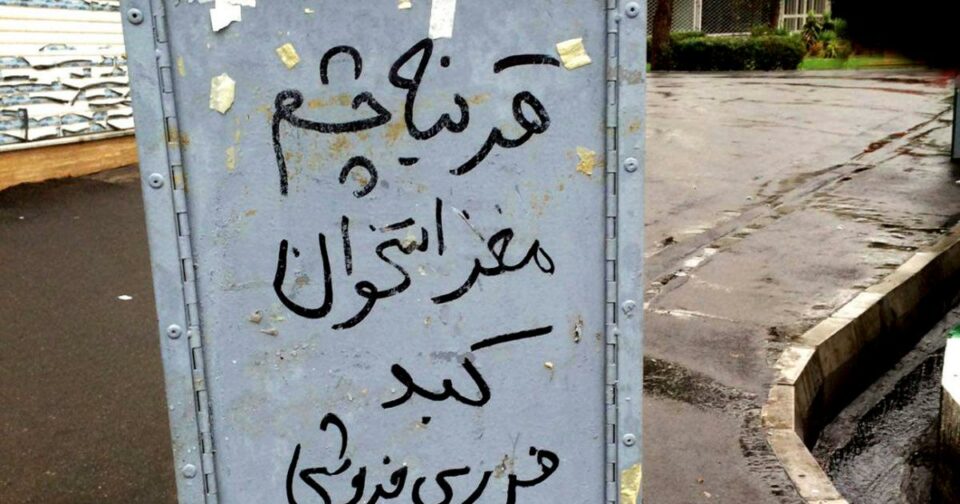 قرنیه چشم
مغز استخوان
کبد
فوری فروشی